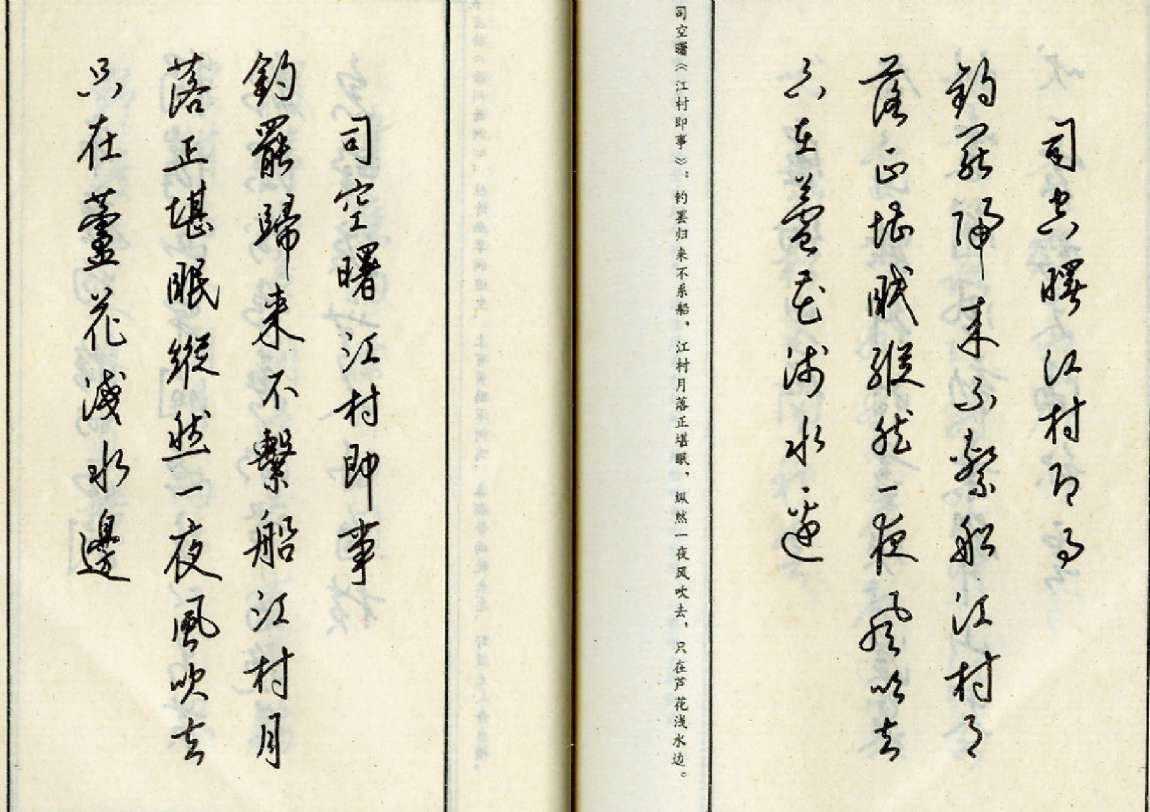 司空曙江村即事
钓罢归来不系船江村月
落正堪眠纵然一夜风吹去
只在芦花浅水边
司空曙《江村即事》：钓罢归来不系船，江村月落正堪眠，纵然一夜风吹去，只在芦花浅水边。
司空曙江村即事
釣罷歸来不繫船江村月
落正堪眠縱然一夜風吹去
只在蘆花淺水邊